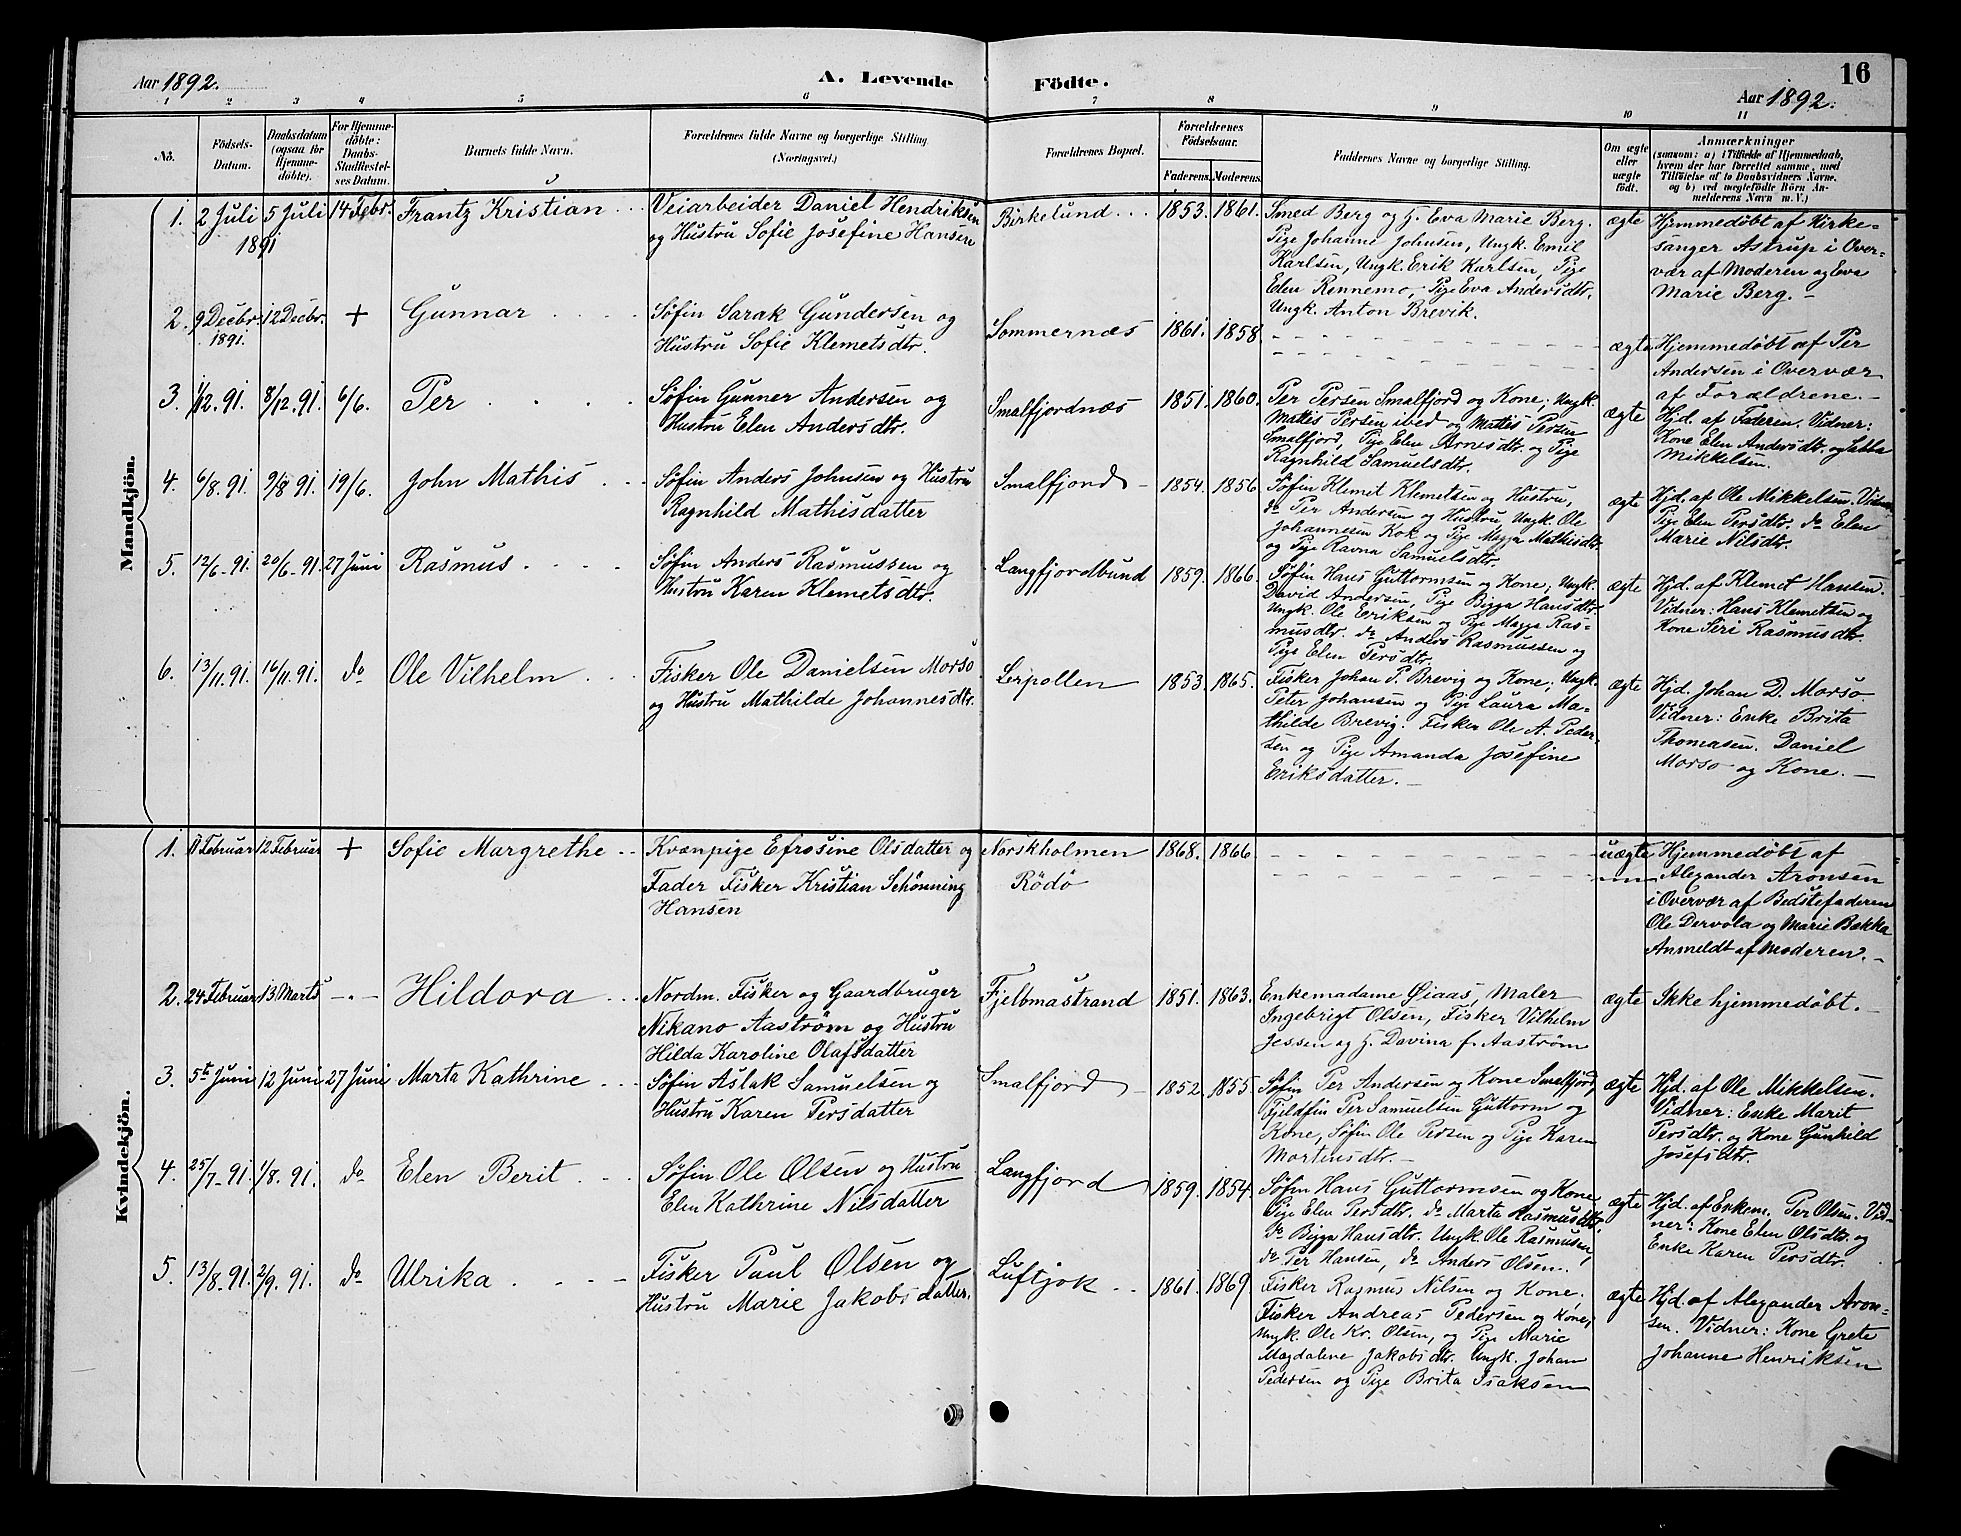 Aar 1892.
A. Levende Födte.
16
Aar 1892.
1 2 3 4 5 6 7 8 9 10 11
No.
Födsels-Datum.
Daabsdatum (ogsaa for Hjemme-döbte).
For Hjemme-döbte: Daabs-Stadfæstel-ses Datum.
Barnets fulde Navn.
Forældrenes fulde Navne og borgerlige Stilling (Næringsvei.)
Forældrenes Bopæl.
Forældrenes Födselsaar.
Faderens. Moderens.
Faddernes Navne og borgerlige Stilling.
Om ægte eller uægte födt.
Anmærkninger
(saasom: a) i Tilfælde af Hjemmedaab,
hvem der har forrettet samme, med
Tilföielse af to Daabsvidners Navne,
og b) ved uægtefödte Börn An-
melderens Navn m. V.)
Mandkjön.
1. 2 Juli 1891 5 Juli 14 Febr. Frantz Kristian
Veiarbeider Daniel Hendriksen
og Hustru Sofie Josefine Hansen
Birkelund 1853. 1861.
Smed Berg og H. Eva Marie Berg.
Pige Johanne Johnsen, Ungk. Emil
Karlsen, Ungk. Erik Karlsen, Pige
Elen Rennemo, Pige Eva Andersdtr.
Ungk. Anton Brevik.
ægte
Hjemmedøbt af Kirke-
sanger Astrup i Over-
vær af Moderen og Eva
Marie Berg. –
2. 9 Decbr. 1891. 12 Decbr. + Gunnar
Søfin Sarak Gundersen og
Hustru Sofie Klemetsdtr.
Sommernæs 1861. 1858.
ægte
Hjemmedøbt af Per
Andersen i Overvær
af Forældrene. –
3. 1/12. 91. 8/12. 91. 6/6. Per
Søfin Gunner Andersen og
Hustru Elen Andersdtr.
Smalfjordnæs 1851. 1860.
Per Persen Smalfjord og Kone, Ungk.
Mattis Persen ibed og Mattis Persen
Smalfjord, Pige Elen Arnesdtr. og Pige
Ragnhild Samuelsdtr.
ægte
Hjd. af Faderen. Vidner:
Kone Elen Andersdtr. og
Mikkelsen.
4. 6/8. 91. 9/8 91. 19/6. John Mathis
Søfin Anders Johnsen og Hustru
Ragnhild Mathisdatter
Smalfjord 1854. 1856
Søfin Klemit Klemetsen og Hustru,
do Per Andersen og Hustru, Ungk. Ole
Johannesen Kok og Pige Magga Mathisdtr.
og Pige Ravna Samuelsdtr.
ægte
Hjd. af Ole Mikkelsen. Vidner
Pige Elen Persdtr. do Elen
Marie Nilsdtr.
5. 12/6. 91. 20/6. 91. 27 Juni Rasmus
Søfin Anders Rasmussen og
Hustru Karen Klemetsdtr.
Langfjordbund 1859. 1866.
Søfin Hans Guttormsen og Kone, Ungk.
David Andersen, Pige Bigga Hansdtr.
Ungk. Ole Eriksen og Pige Magga Ras-
musdtr. do Anders Rasmussen og
Pige Elen Persdtr.
ægte
Hjd. af Klemet Hansen.
Vidner: Hans Klemetsen og
Kone Siri Rasmusdtr.
6. 13/11. 91. 16/11. 91. do Ole Vilhelm
Fisker Ole Danielsen Morsø
og Hustru Mathilde Johannesdtr.
Lerpollen 1853. 1865.
Fisker Johan P. Brevig og Kone, Ungk.
Peter Johansen og Pige Laura Ma-
thilde Brevig. Fisker Ole A. Peder-
sen og Pige Amanda Josefine
Eriksdatter. –
ægte
Hjd. Johan D. Morsø.
Vidner: Enke Brita
Thomasen. Daniel
Morsø og Kone. –
Kvindekjön.
1. Februar 12 Februar + Sofie Margrethe
Kvænpige Efrosine Olsdatter og
Fader Fisker Kristian Schønning
Hansen
Norskholmen
Rödø
1868. 1866
uægte
Hjemmedøbt af
Alexander Aronsen
i Overvær af Bedstefaderen
Ole Dervola og Marie Bakka
Anmeldt af Moderen. –
2. 24 Februar 13 Marts -"- Hildora
Nordm. Fisker og Gaardbruger
Nikano Aaström og Hustru
Hilda Karoline Olafsdatter
Fjelbmastrand 1851. 1863.
Enkemadame Giaas, Maler
Ingebrigt Olsen, Fisker Vilhelm
Jessen og H. Davina f. Aaström
ægte
Ikke hjemmedøbt. –
3. 5te Juni 12 Juni 27 Juni Marta Kathrine
Søfin Aslak Samuelsen og
Hustru Karen Persdatter
Smalfjord 1852 1855.
Søfin Per Andersen og Kone Smalfjord,
Fjeldfin Per Samuelsen Guttorm og
Kone, Søfin Ole Persen og Pige Karen
Mortensdtr. –
ægte
Hjd. af Ole Mikkelsen.
Vidner: Enke Marit
Persdtr. og Kone Gunhild
Josefsdtr.
4. 25/7. 91. 1/8. 91. do Elen Berit
Søfin Ole Olsen og Hustru
Elen Kathrine Nilsdatter
Langfjord 1859. 1854.
Søfin Hans Guttormsen og Kone
Pige Elen Persdtr. do Marta Rasmusdtr.
do Bigga Hansdtr. Ungk. Ole Rasmusen,
do Per Hansen, do Anders Olsen.
ægte
Hjd. af Enkem. Per Olsen. Vid-
ner: Kone Elen Olsdtr. og
Enke Karen Persdtr.
5. 13/8. 91. 2/9. 91. do Ulrika
Fisker Paul Olsen og
Hustru Marie Jakobsdatter.
Luftjok 1861. 1869.
Fisker Rasmus Nilsen og Kone,
Fisker Andreas Pedersen og Kone,
Ungk. Ole Kr. Olsen, og Pige Marie
Magdalene Jakobsdtr. Ungk. Johan
Pedersen og Pige Brita Isaksen
ægte
Hjd. af Alexander Aron-
sen. Vidner: Kone Grete
Johanne Henriksen